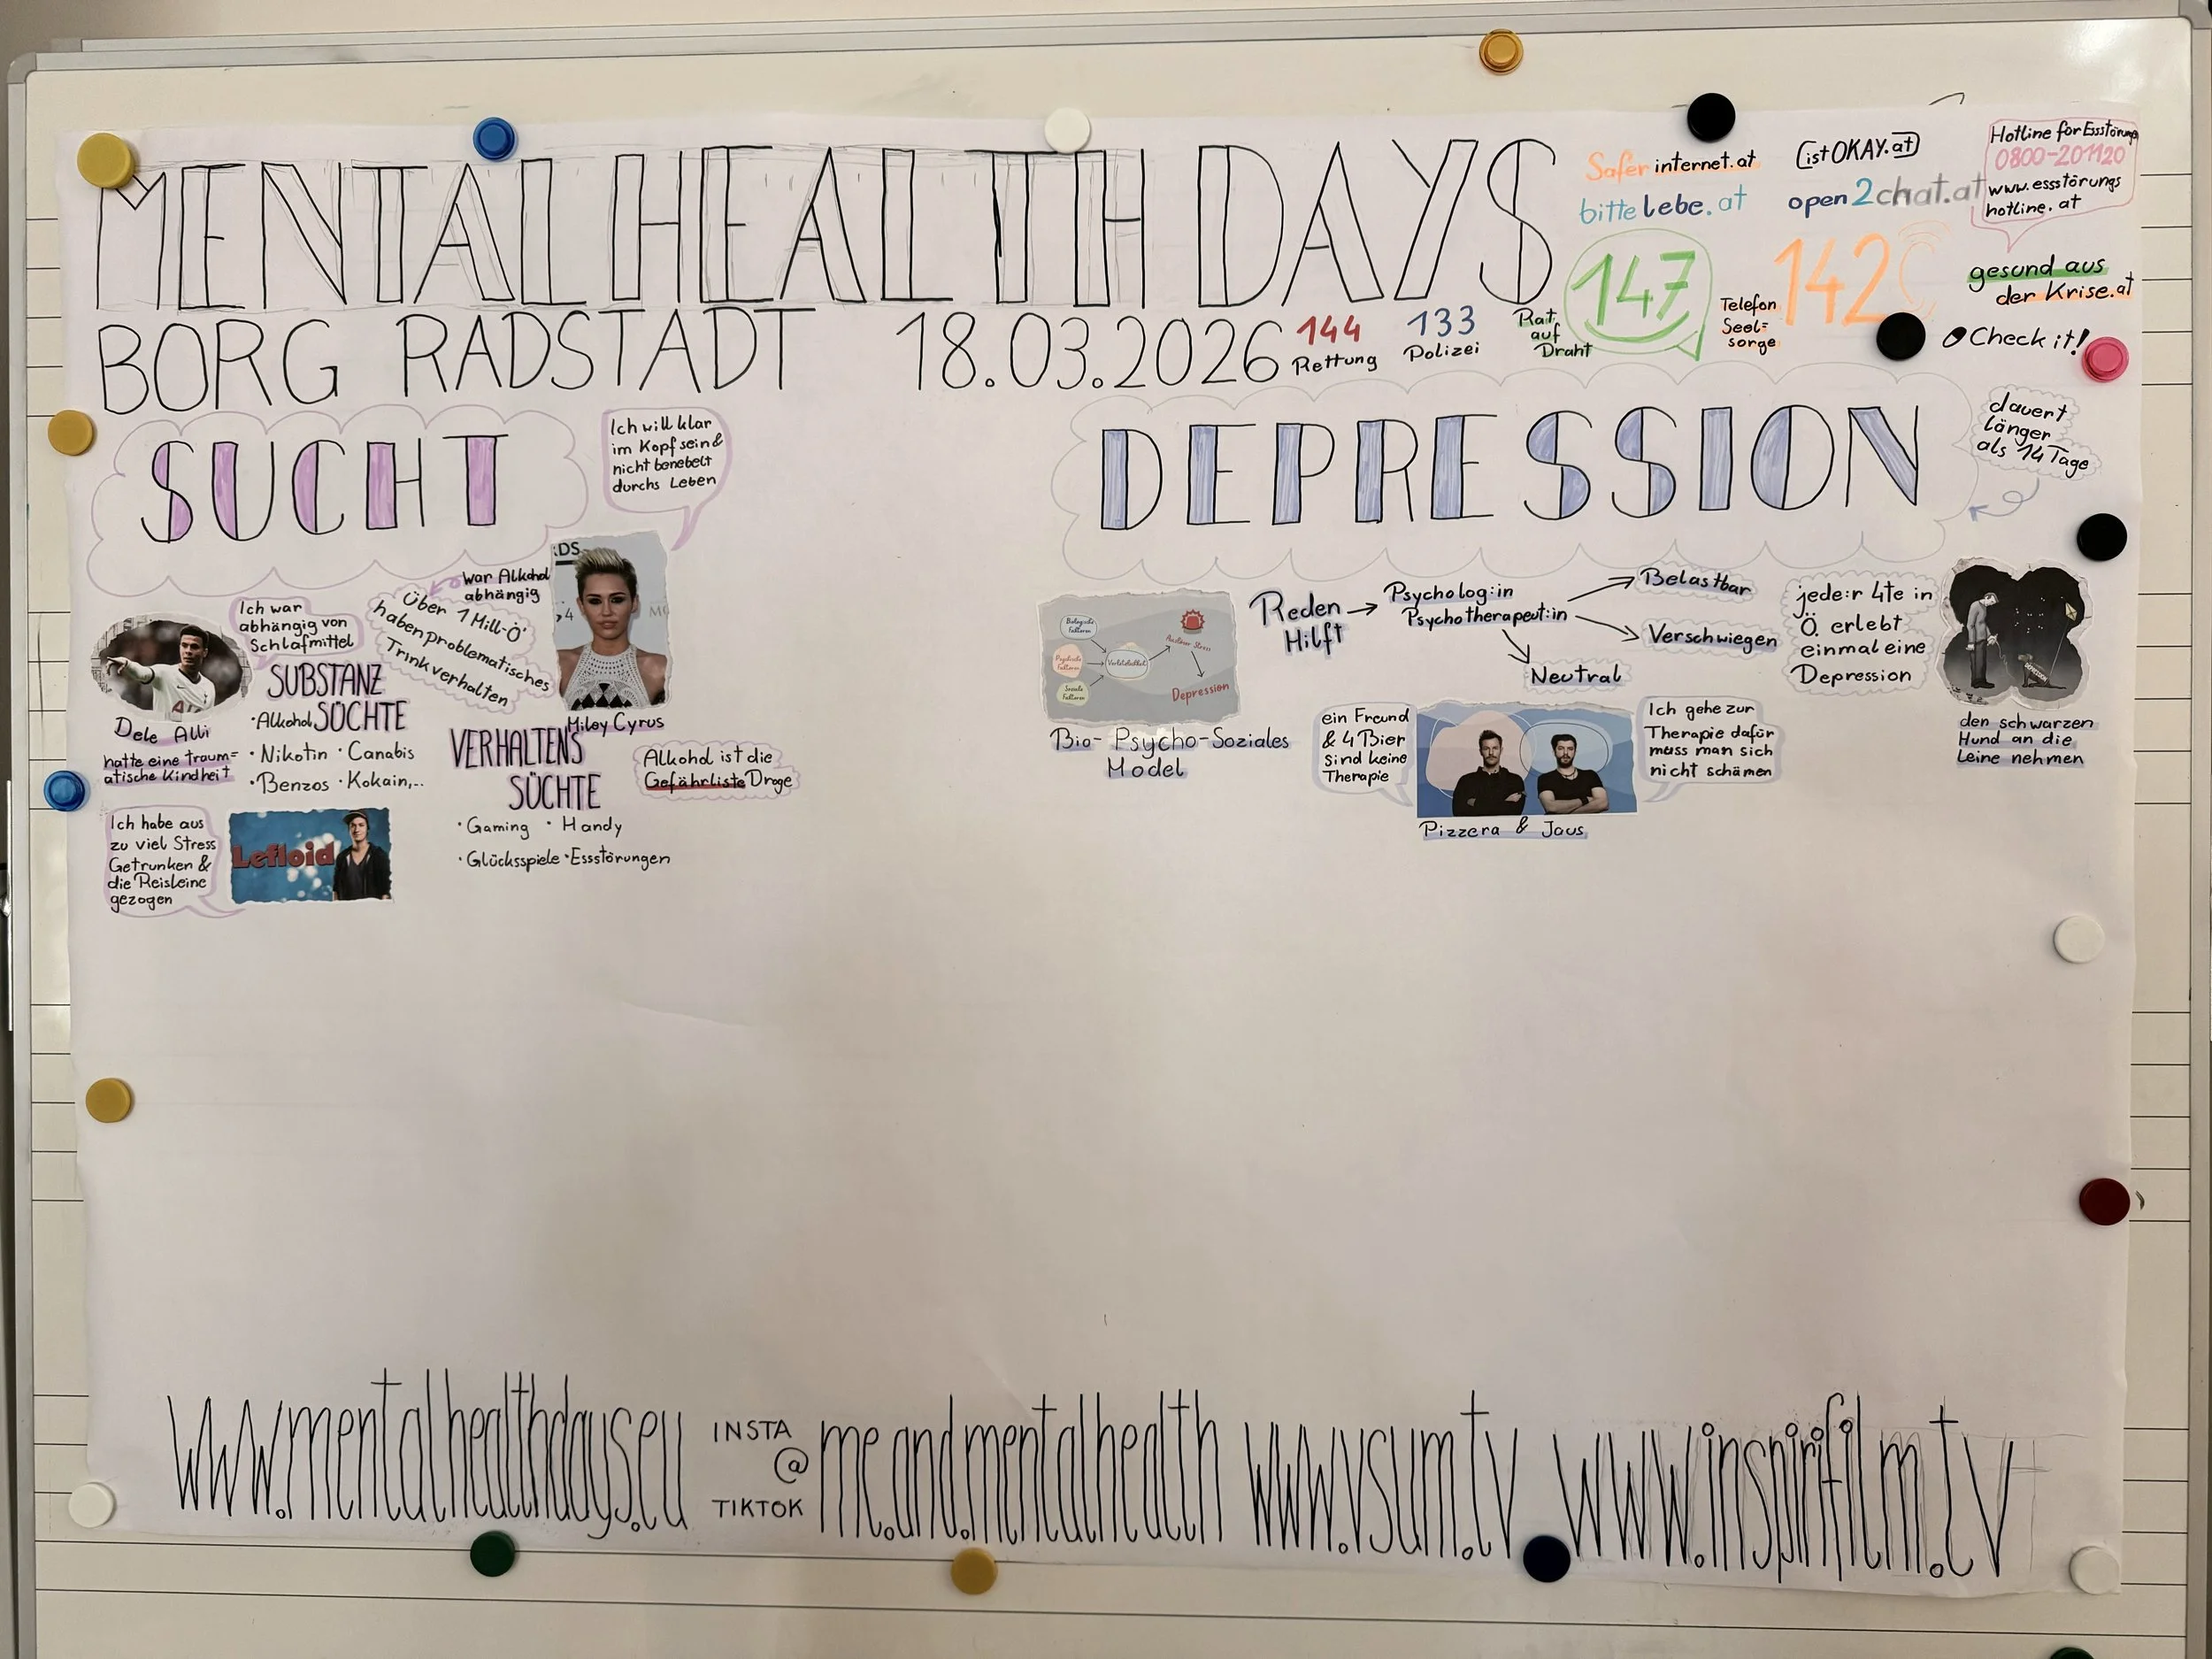 MENTAL HEALTH DAYS
BORG RADSTADT 18.03.2026
144
Rettung
133
Polizei
Rat
auf
Draht
147
Telefon
Seel=
sorge
142
Safer internet.at
bitte lebe.at
istOKAY.at
open2chat.at
Hotline for Essstörung
0800-201120
www.essstörungs
hotline.at
gesund aus
der Krise.at
Check it!
SUCHT
Ich will klar
im Kopf sein &
nicht benebelt
durchs Leben
war Alkohol
abhängig
Über 1 Mill-Ö
haben problematisches
Trinkverhalten
Miley Cyrus
Ich war
abhängig von
Schlafmittel
Dele Alli
hatte eine traum=
atische Kindheit
SUBSTANZ
SÜCHTE
· Alkohol
· Nikotin · Canabis
· Benzos · Kokain,...
VERHALTENS
SÜCHTE
· Gaming · Handy
· Glücksspiele · Essstörungen
Alkohol ist die
Gefährliste Droge
Ich habe aus
zu viel Stress
Getrunken &
die Reisleine
gezogen
Lefloid
DEPRESSION
dauert
länger
als 14 Tage
Biologische
Faktoren
Psychische
Faktoren
Soziale
Faktoren
Depression
Bio-Psycho-Soziales
Model
Reden
Hilft
Psycholog:in
Psychotherapeut:in
Belastbar
Verschwiegen
Neutral
jede:r 4te in
Ö. erlebt
einmal eine
Depression
den schwarzen
Hund an die
Leine nehmen
ein Freund
& 4 Bier
sind keine
Therapie
Ich gehe zur
Therapie dafür
muss man sich
nicht schämen
Pizzera & Jaus
www.mentalhealthdays.eu
INSTA
@
TIKTOK
me.and.mentalhealth
www.vsum.tv
www.inspirifilm.tv